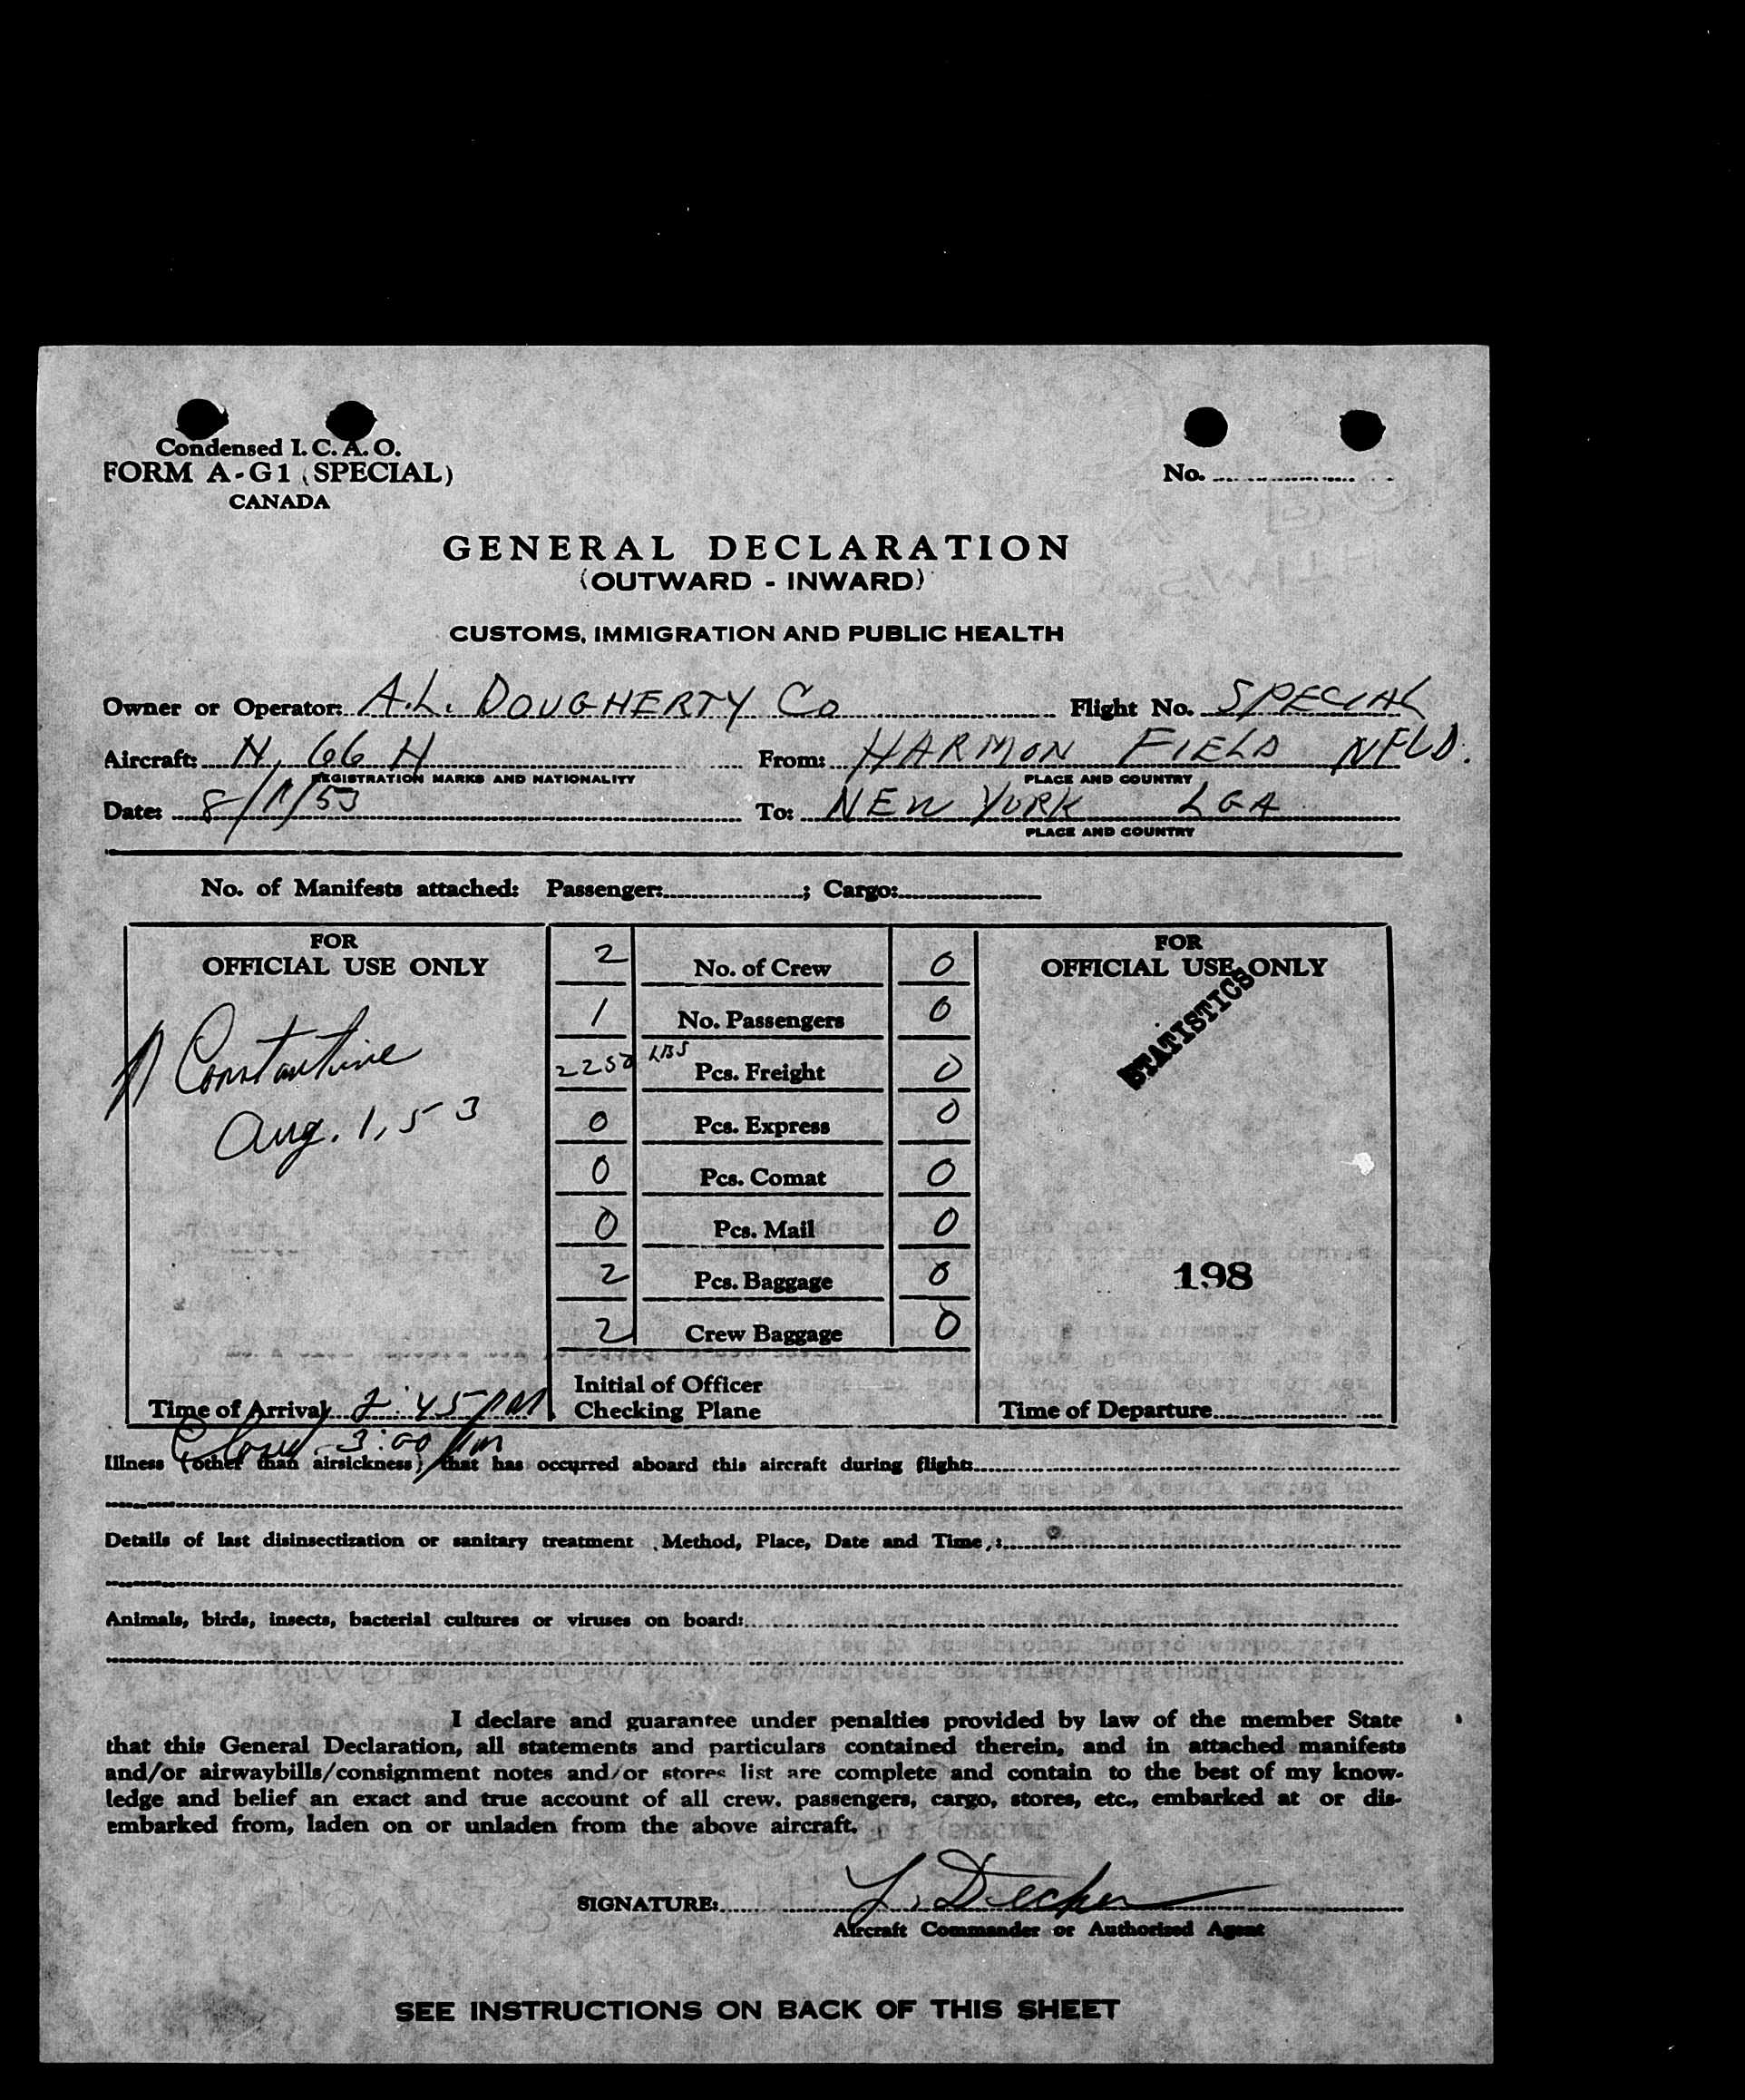 Condensed I. C. A. O.
FORM A-G1 (SPECIAL)
CANADA
No.
GENERAL DECLARATION
(OUTWARD - INWARD)
CUSTOMS, IMMIGRATION AND PUBLIC HEALTH
Owner or Operator: A.L. DOUGHERTY Co Flight No. SPECIAL
Aircraft: N, 66 H From: HARMON FIELD NFLD.
REGISTRATION MARKS AND NATIONALITY PLACE AND COUNTRY
Date: 8/1/53 To: NEW YORK LGA
PLACE AND COUNTRY
No. of Manifests attached: Passenger: ; Cargo:
FOR
OFFICIAL USE ONLY
Constantine
Aug. 1, 53
2 No. of Crew 0
1 No. Passengers 0
2250 LBS Pcs. Freight 0
0 Pcs. Express 0
0 Pcs. Comat 0
0 Pcs. Mail 0
2 Pcs. Baggage 0
2 Crew Baggage 0
Initial of Officer
Checking Plane
FOR
OFFICIAL USE ONLY
STATISTICS
198
Time of Arrival 2:45 PM
Time of Departure
3:00 pm
Illness (other than airsickness) that has occurred aboard this aircraft during flight:
Details of last disinsectization or sanitary treatment (Method, Place, Date and Time):
Animals, birds, insects, bacterial cultures or viruses on board:
I declare and guarantee under penalties provided by law of the member State
that this General Declaration, all statements and particulars contained therein, and in attached manifests
and/or airwaybills/consignment notes and/or stores list are complete and contain to the best of my know-
ledge and belief an exact and true account of all crew. passengers, cargo, stores, etc., embarked at or dis-
embarked from, laden on or unladen from the above aircraft.
SIGNATURE: L. Decker
Aircraft Commander or Authorised Agent
SEE INSTRUCTIONS ON BACK OF THIS SHEET